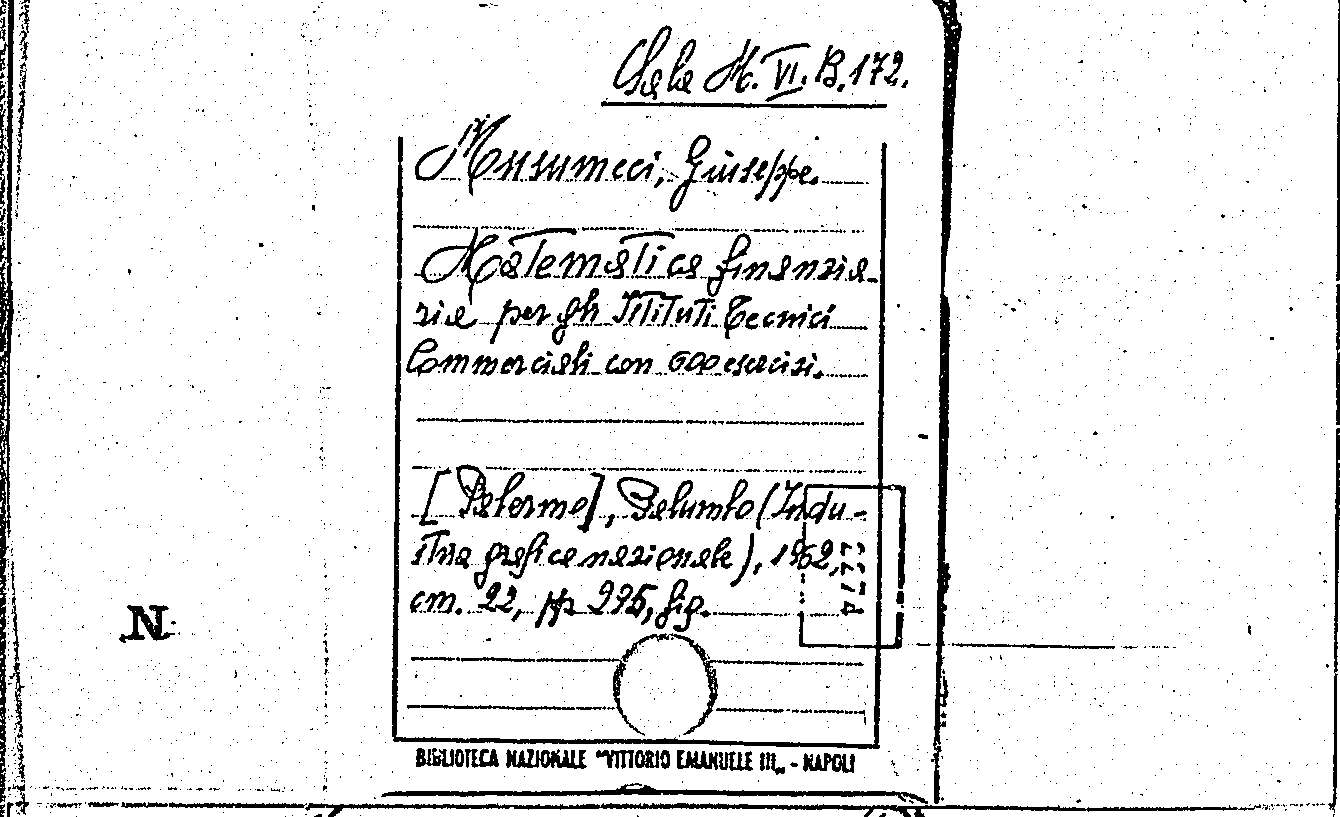 Sala M. VI. B. 172.
Musumeci, Giuseppe.
Matematica finanzia-
ria per gli Istituti Tecnici
Commerciali con 600 esercizi.
[Palermo], Palumbo (Indu-
stria grafica nazionale), 1952,
cm. 22, pp 295, fig.
N
BIBLIOTECA NAZIONALE "VITTORIO EMANUELE III„ - NAPOLI